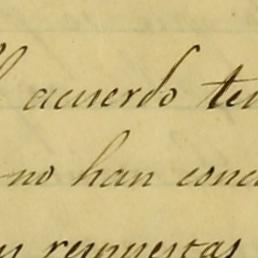 l acuerdo te
no han conc
respuestas